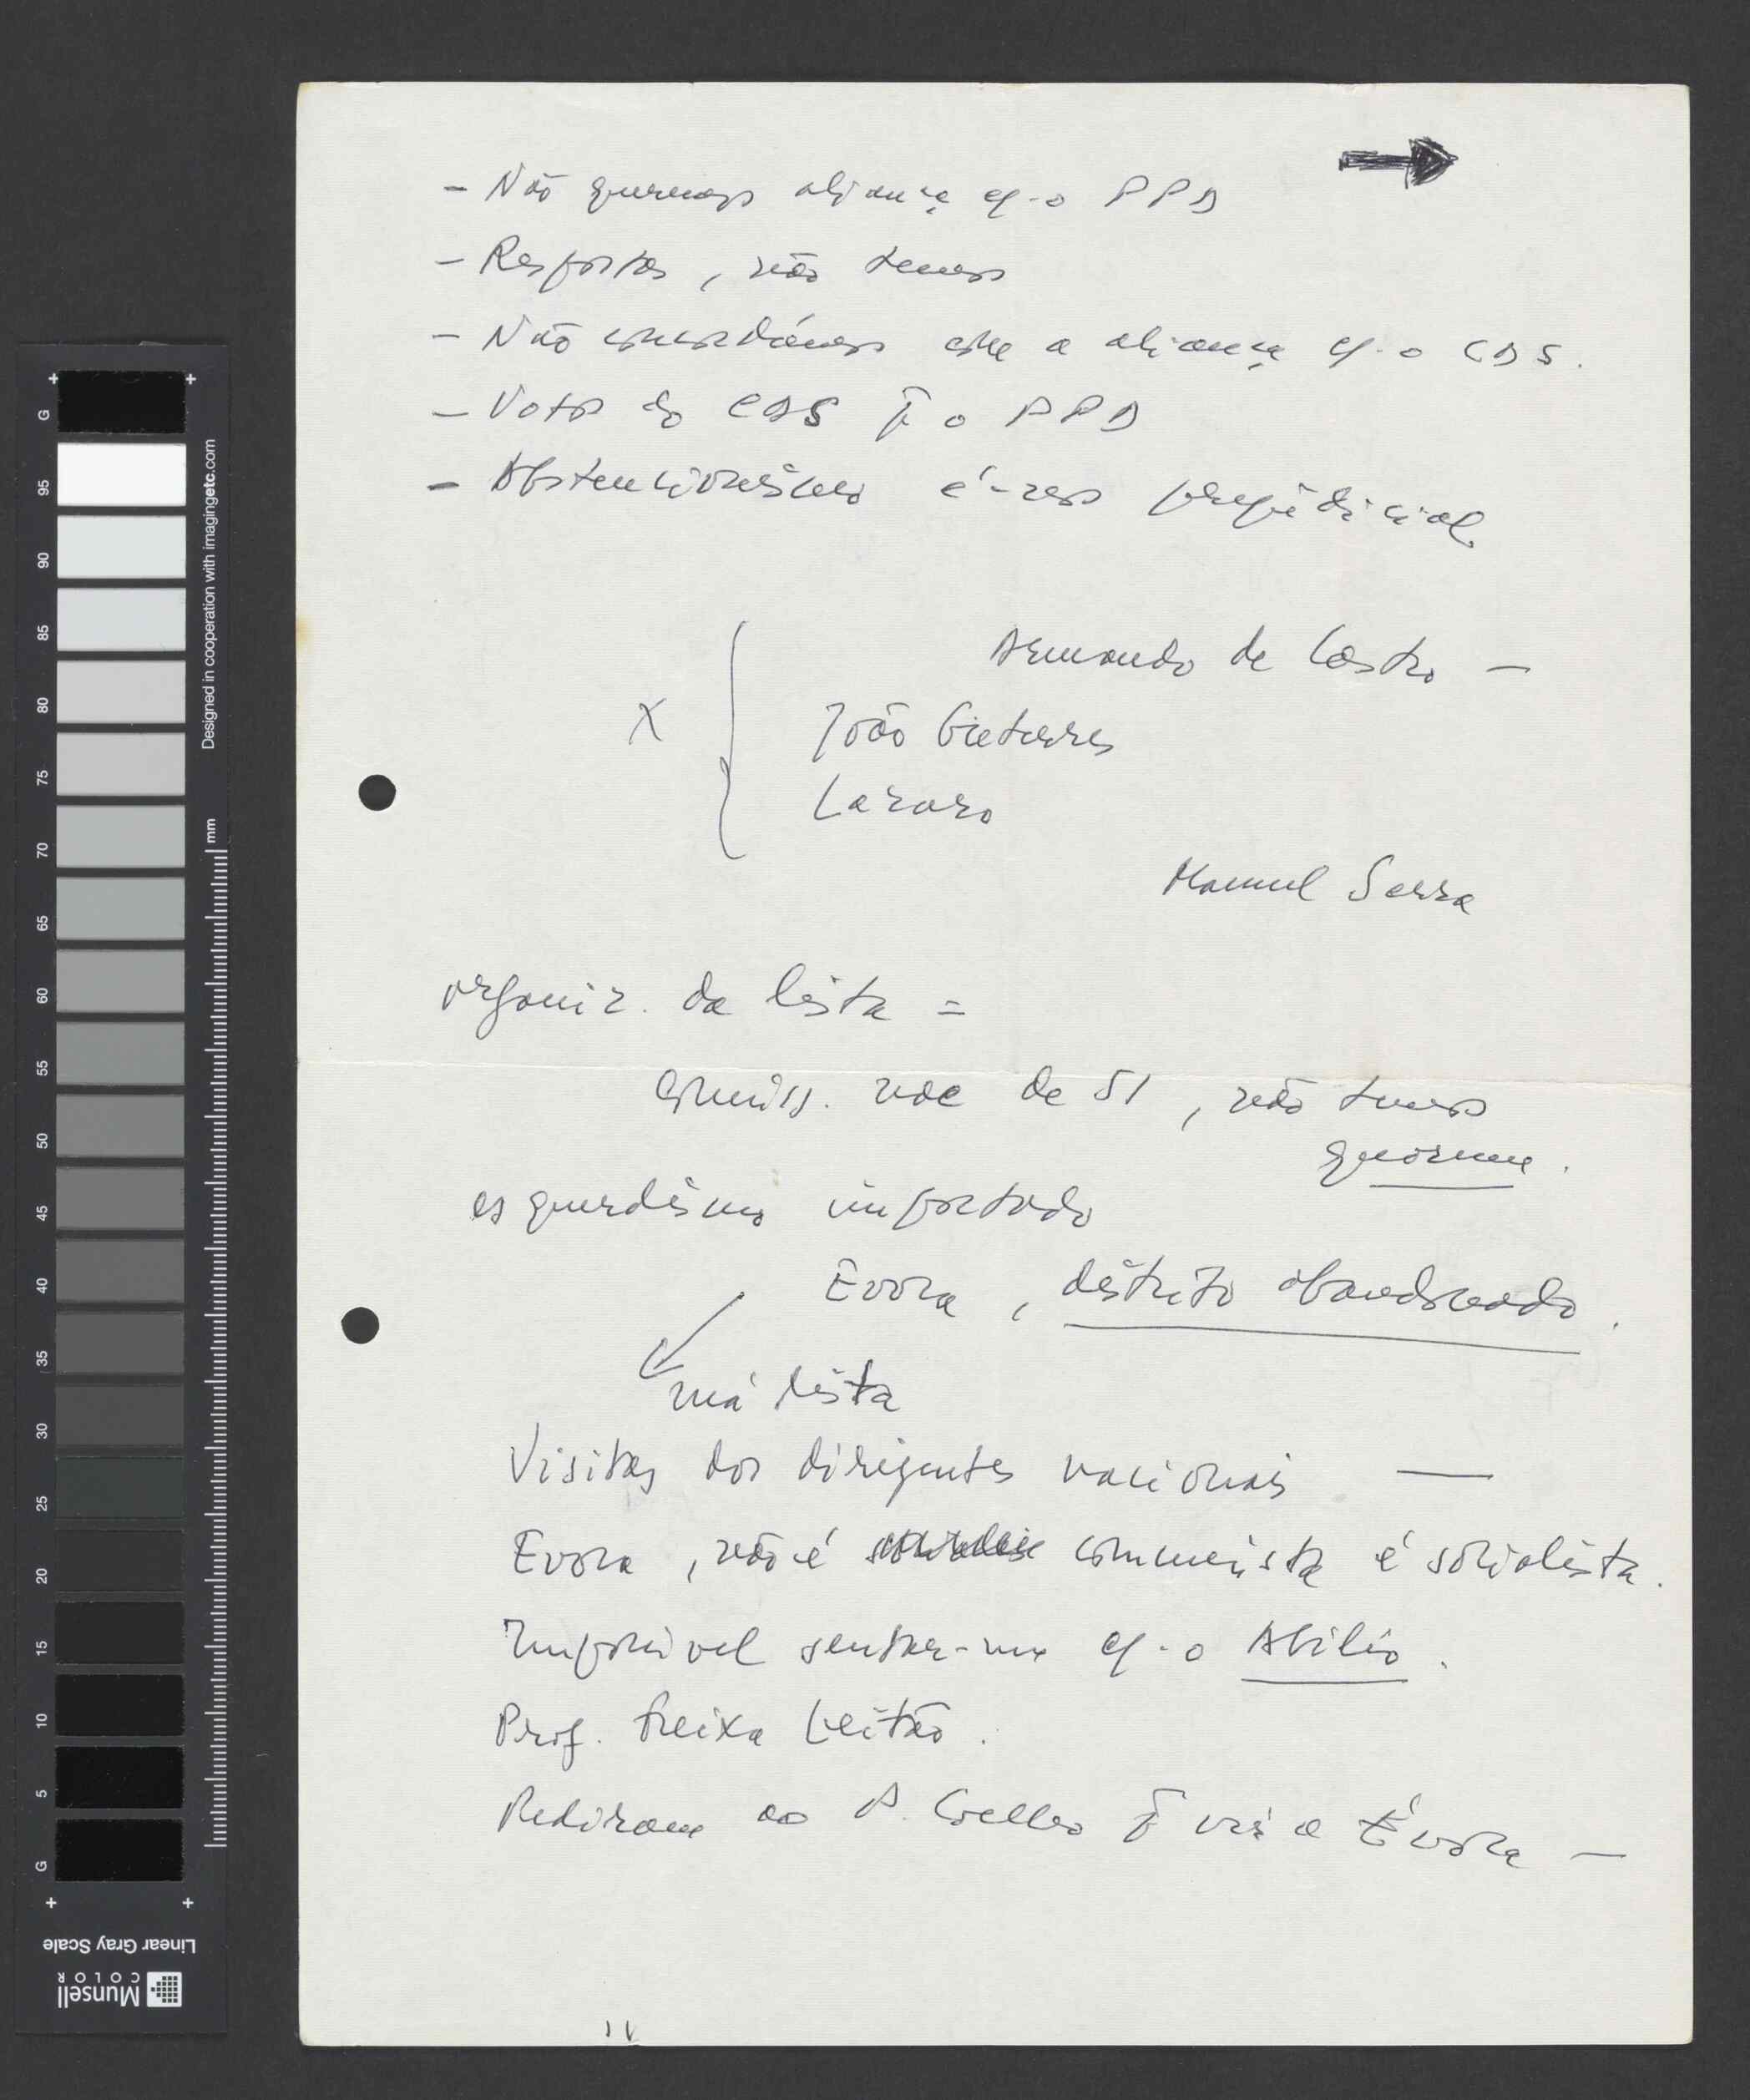 - Não queremos aliança c/-o PPD
- Respostas, não temos
- Não concordámos com a aliança c/-o CDS.
- Votos do CDS p̄ o PPD
- Abstencionismo é-nos prejudicial
Armando de Castro -
X João Guterres
Lázaro
Manuel Serra
organiz. da lista =
comiss. de 51, não temos
quorum.
esquerdismo importado
Evora, distrito abandonado.
má lista
Visitas dos dirigentes nacionais —
Evora, não é comunista é socialista.
Impossível sentar-me c/-o Abílio.
Prof. Freixa Leitão.
Pediram ao P. Coelho p̄ vir a Évora -
G 95 90 85 80 75 70 65 60 55 50 45 40 35 30 25 20 15 10 5 G
Designed in cooperation with imagingetc.com
mm
Linear Gray Scale
Munsell
COLOR